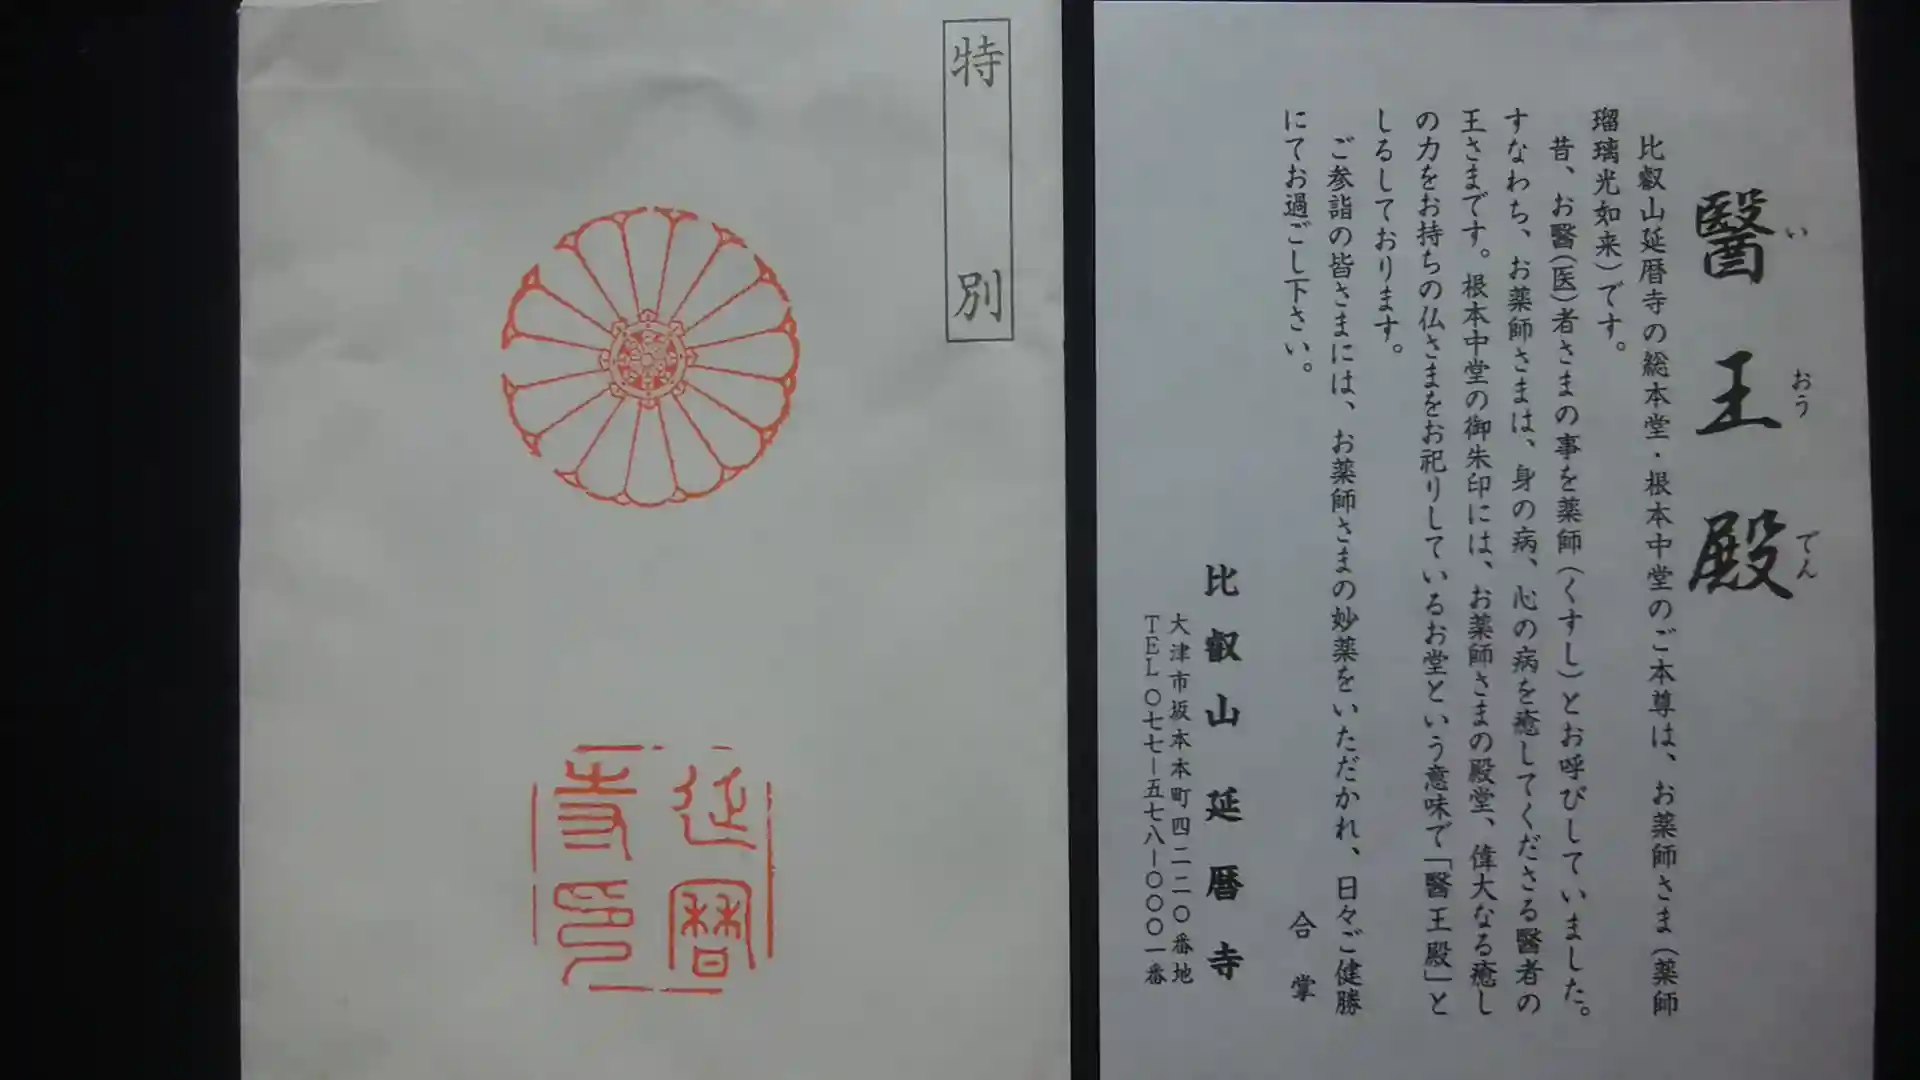 特別
延暦
寺印
醫王殿
い おう でん
比叡山延暦寺の総本堂・根本中堂のご本尊は、お薬師さま(薬師
瑠璃光如来)です。
昔、お醫(医)者さまの事を薬師(くすし)とお呼びしていました。
すなわち、お薬師さまは、身の病、心の病を癒してくださる醫者の
王さまです。根本中堂の御朱印には、お薬師さまの殿堂、偉大なる癒し
の力をお持ちの仏さまをお祀りしているお堂という意味で「醫王殿」と
しるしております。
ご参詣の皆さまには、お薬師さまの妙薬をいただかれ、日々ご健勝
にてお過ごし下さい。
合掌
比叡山延暦寺
大津市坂本本町四二二〇番地
TEL〇七七-五七八-〇〇〇一番